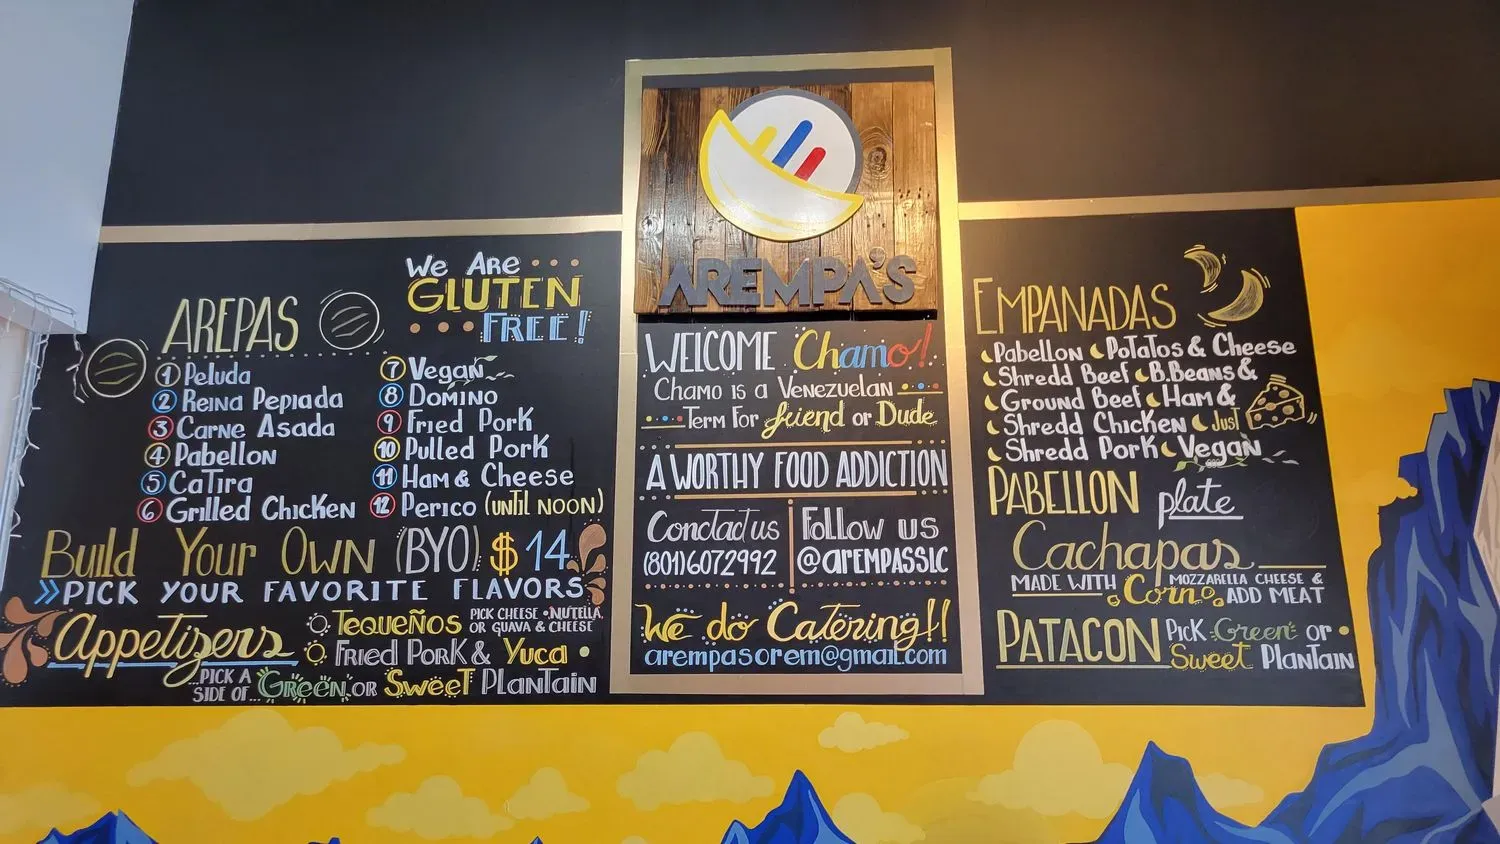 AREPAS
We Are
GLUTEN
FREE!
1 Peluda
2 Reina Pepiada
3 Carne Asada
4 Pabellon
5 Catira
6 Grilled Chicken
7 Vegan
8 Domino
9 Fried Pork
10 Pulled Pork
11 Ham & Cheese
12 Perico (until noon)
Build Your Own (BYO) $14
» PICK YOUR FAVORITE FLAVORS
Appetizers
Tequeños PICK CHEESE • NUTELLA,
OR GUAVA & CHEESE
Fried Pork & Yuca
PICK A
SIDE OF Green OR Sweet Plantain
AREMPA'S
WELCOME Chamo!
Chamo is a Venezuelan
Term For friend or Dude
A WORTHY FOOD ADDICTION
Conctact us
(801)6072992
Follow us
@arempasslc
We do Catering!!
arempasorem@gmail.com
EMPANADAS
Pabellon
Potatos & Cheese
Shredd Beef
B.Beans &
Ground Beef
Ham &
Shredd Chicken
Just
Shredd Pork
Vegan
PABELLON plate
Cachapas
MADE WITH Corn MOZZARELLA CHEESE &
ADD MEAT
PATACON Pick Green or
Sweet Plantain